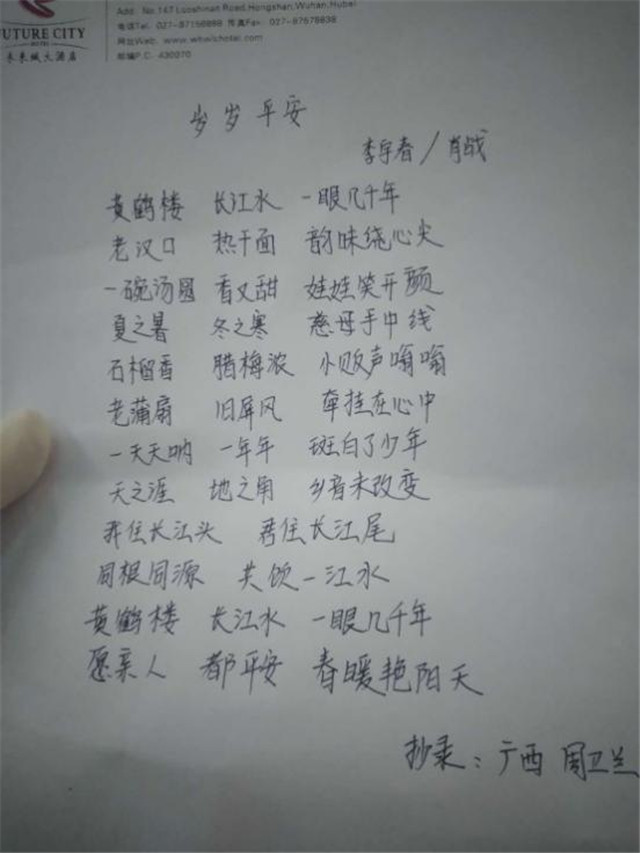 Add. No.147 Luoshinan Road,Hongshan,Wuhan,Hubei
FUTURE CITY
电话Tel. 027-87156888 传真Fax. 027-87678838
HOTEL
网址Web. www.whwlchotel.com
未来城大酒店
邮编P.C. 430070
岁岁平安
李宇春/肖战
黄鹤楼 长江水 一眼几千年
老汉口 热干面 韵味绕心尖
一碗汤圆 香又甜 娃娃笑开颜
夏之暑 冬之寒 慈母手中线
石榴香 腊梅浓 小贩声嗡嗡
老蒲扇 旧屏风 牵挂在心中
一天天呐 一年年 斑白了少年
天之涯 地之角 乡音未改变
我住长江头 君住长江尾
同根同源 共饮一江水
黄鹤楼 长江水 一眼几千年
愿亲人 都平安 春暖艳阳天
抄录：广西 周卫兰